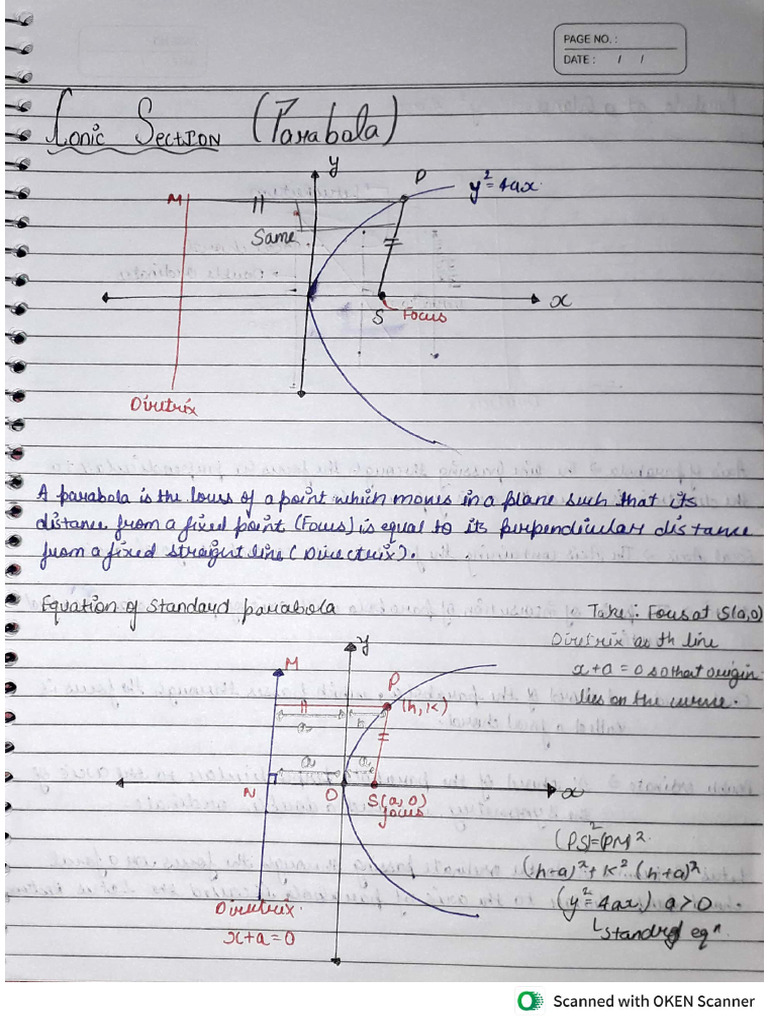 PAGE NO. :
DATE : / /
Conic Section (Parabola)
y
P
y² = 4ax
M
Same
x
S
Focus
Diretrix
A parabola is the locus of a point which moves in a plane such that its
distance from a fixed point (Focus) is equal to its perpendicular distance
from a fixed straight line (Directrix).
Equation of Standard parabola
Take : Focus at S(a,0)
Diretrix as th line
x+a = 0 so that origin
lies on the curve.
y
M
P
(h, k)
a
h
a
a
N
O
S(a, 0)
focus
x
(PS)² = (PM)²
(h-a)² + k² (h+a)²
(y² = 4ax) a > 0
Standrd eqⁿ
Diretrix
x+a = 0
Scanned with OKEN Scanner